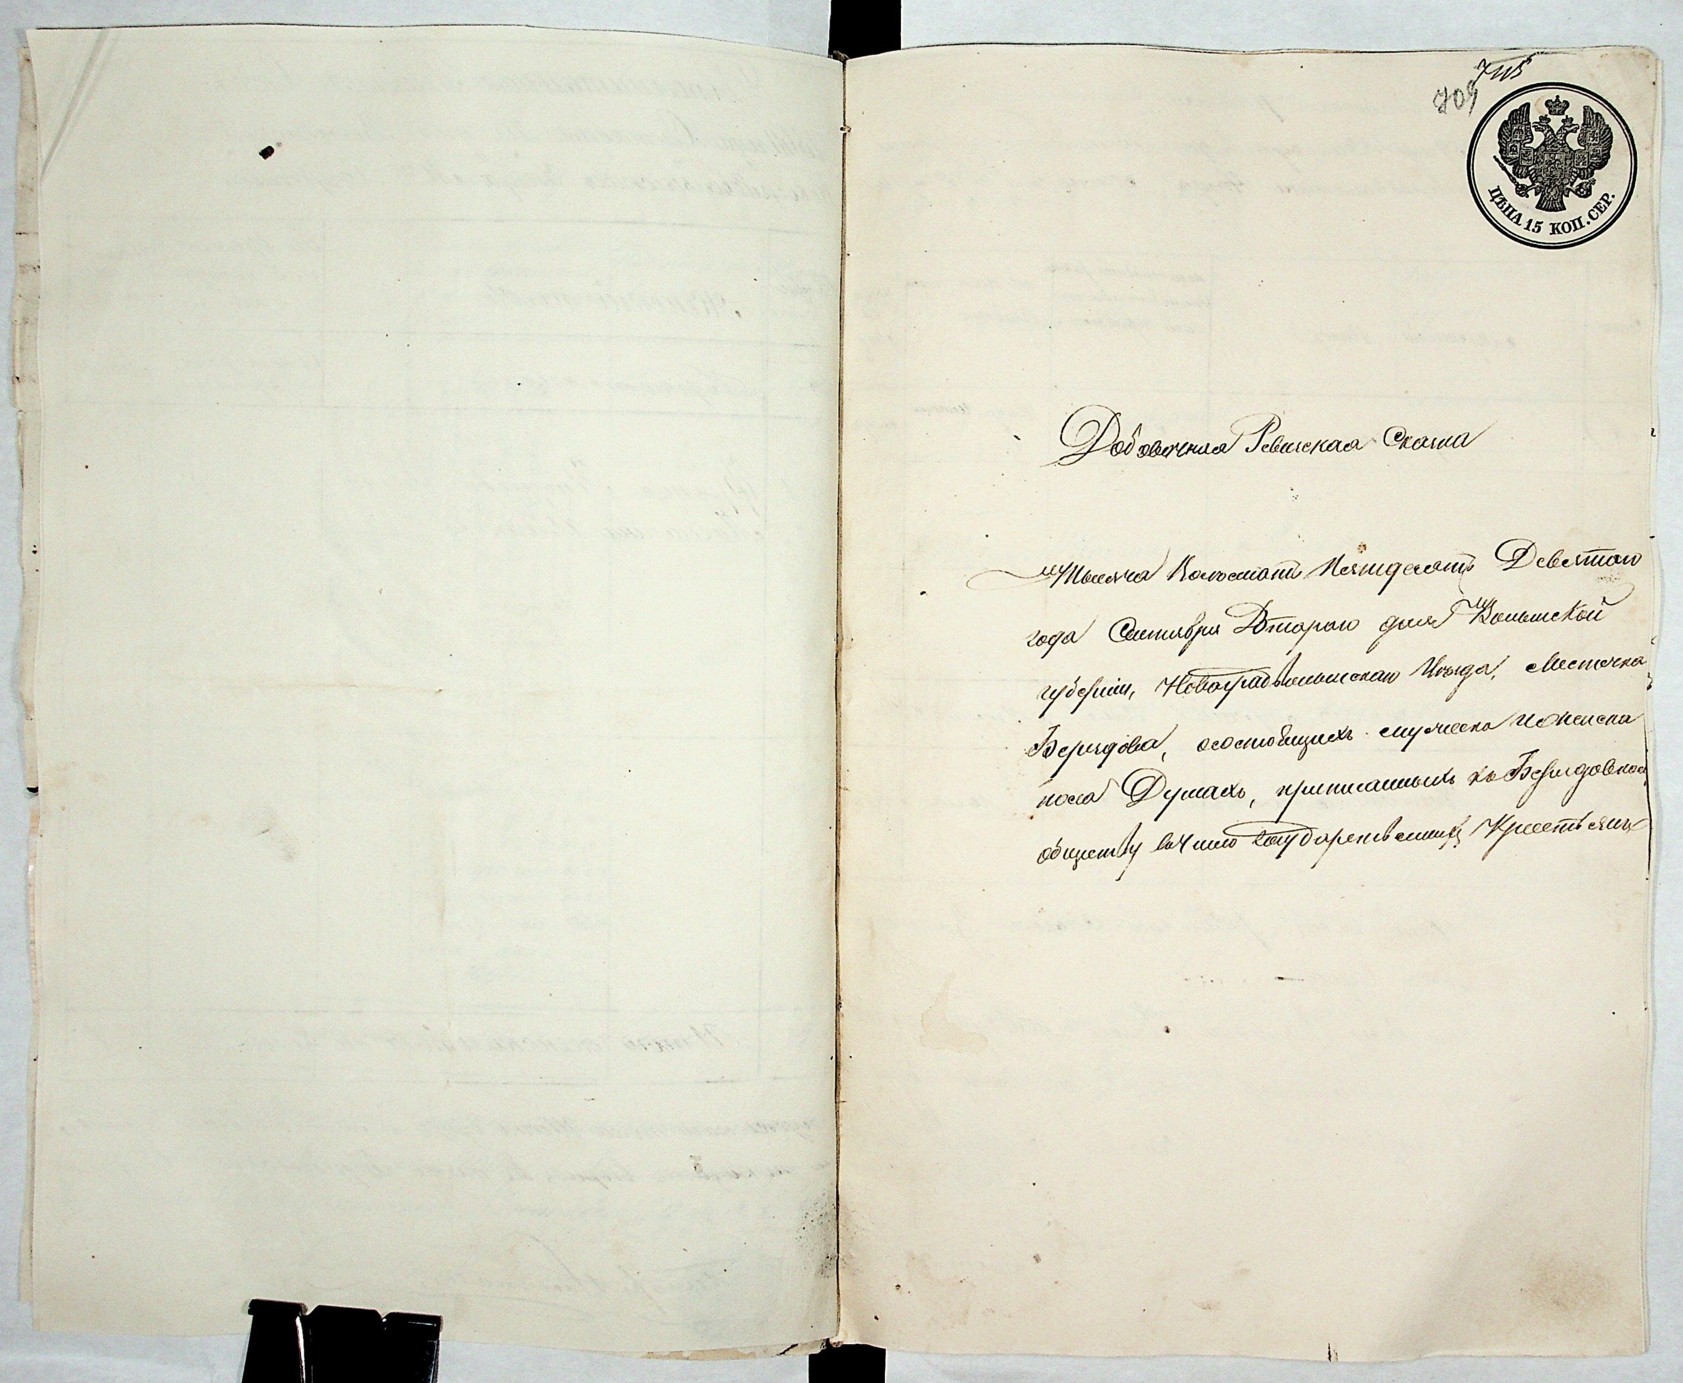 709
ЦѢНА 15 КОП. СЕР.
Добавочная Ревизская Сказка
Тысяча Восемсотъ Пятидесятъ Девятого
года Сентября Второго дня Волынской
губерніи, Новоградволынскаго Уѣзда, Местечка
Берездова, осостоящихъ мужеска и женска
пола Душахъ, приписанныхъ къ Берездовском
обществу вчисло Государственныхъ Крестьянъ